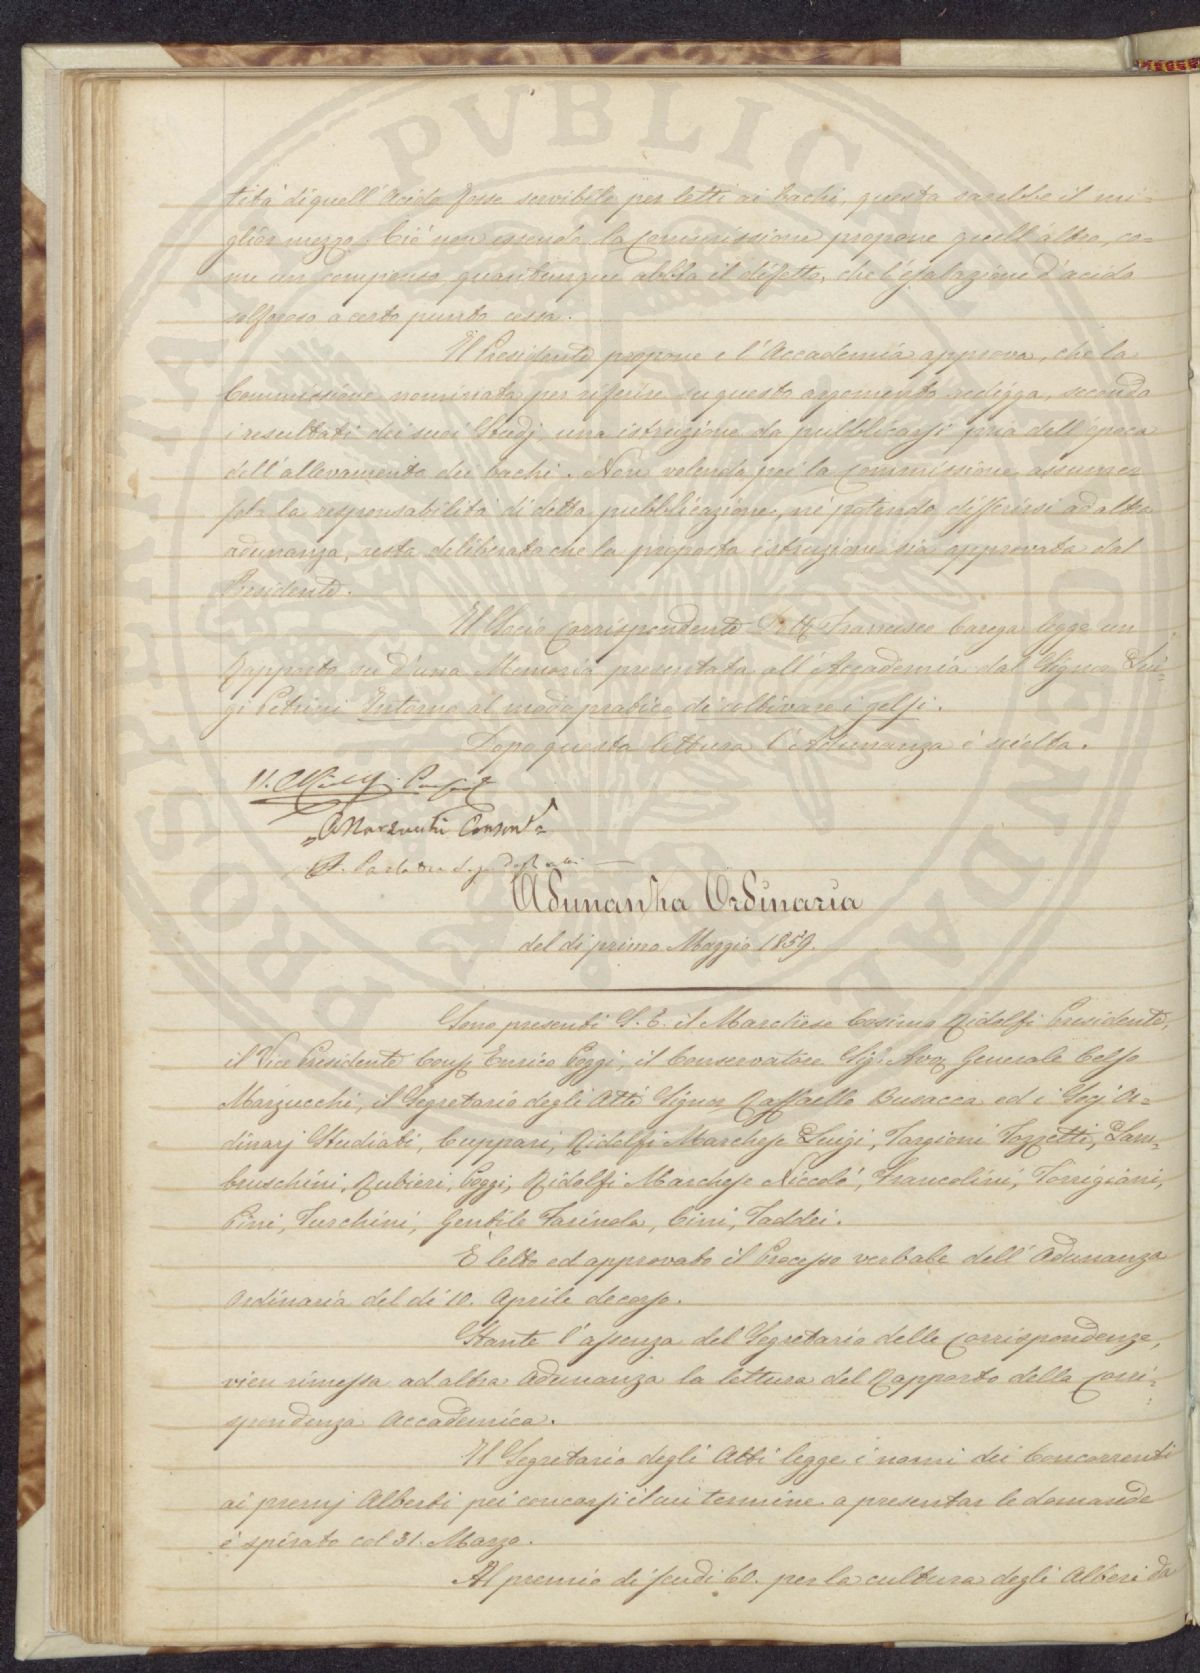 PROSPERITATI PVBLICAE AVGENDAE
tità di quell'acido fosse servibile per letti ai bachi, questo sarebbe il mi=
glior mezzo. Ciò non essendo, la Commissione propone quell'altro, co=
me un compenso, quantunque abbia il difetto, che l'esalazione d'acido
solforoso a certo punto cessa.
Il Presidente propone e l'Accademia approva, che la
Commissione nominata per riferire su questo argomento rediga, secondo
i resultati dei suoi Studj, una istruzione da pubblicarsi pria dell'epoca
dell'allevamento dei bachi. Non volendo poi la Commissione assumer
sola la responsabilità di detta pubblicazione, nè potendo differirsi ad altra
adunanza, resta deliberato che la proposta istruzione sia approvata dal
Presidente.
Il Socio Corrispondente Dott. Francesco Carega legge un
Rapporto su d'una Memoria presentata all'Accademia dal Signor Lui=
gi Petrini Intorno al modo pratico di coltivare i gelsi.
Dopo questa lettura l'Adunanza è sciolta.
C Marzucchi Conson
Adunanza Ordinaria
del dì primo Maggio 1859.
Sono presenti S. E. il Marchese Cosimo Ridolfi Presidente,
il Vice Presidente Consr Enrico Poggi, il Conservatore Sigr. Avv. Generale Celso
Marzucchi, il Segretario degli Atti Signor Raffaello Busacca ed i Socj Or=
dinarj Studiati, Cuppari, Ridolfi Marchese Luigi, Targioni Tozzetti, Lam=
bruschini, Rubieri, Poggi, Ridolfi Marchese Niccolò, Francolini, Torrigiani,
Pini, Turchini, Gentile Farinola, Cini, Taddei.
È letto ed approvato il Processo verbale dell'Adunanza
Ordinaria del dì 10. Aprile decorso.
Stante l'assenza del Segretario delle Corrispondenze,
vien rimessa ad altra Adunanza la lettura del Rapporto della Corri=
spondenza Accademica.
Il Segretario degli Atti legge i nomi dei Concorrenti
ai premj Alberti pei concorsi il cui termine a presentar le domande
è spirato col 31. Marzo.
Al premio di scudi 60. per la cultura degli Alberi da